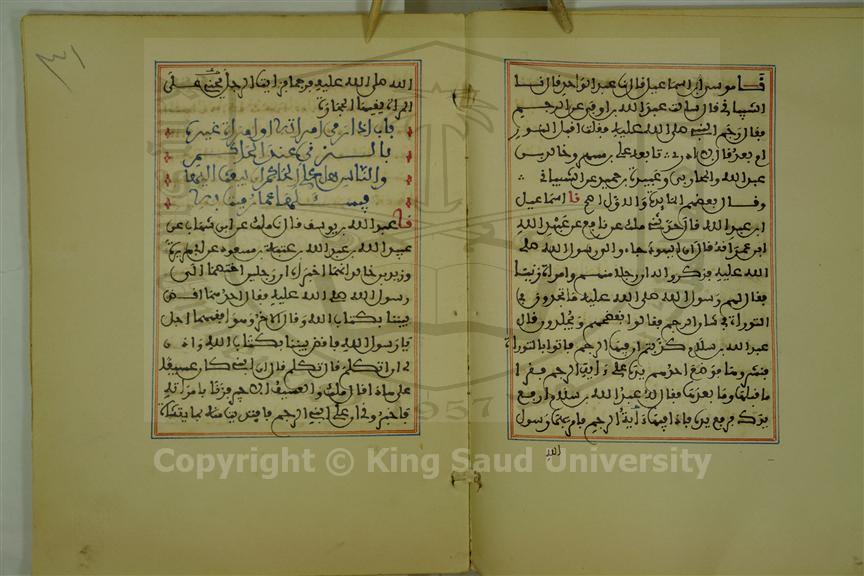 ثا موسى بن اسماعيل قال ثنا عبد الواحد قال ثنا
الشيباني قال سالت عبد الله بن ابي اوفى عن الرجم
فقال رجم النبي صلى الله عليه فقلت اقبل النور
ام بعد قال لا ادري تابعه علي بن مسهر وخالد بن
عبد الله والمحاربي وعبيدة بن حميد عن الشيباني
وقال بعضهم المايدة والاول اصح ثنا اسماعيل
ابن عبد الله قال حدثني ملك عن نافع عن عبد الله
ابن عمر انه قال ان اليهود جاءوا الى رسول الله صلى
الله عليه فذكروا له ان رجلا منهم وامراة زنيا
فقال لهم رسول الله صلى الله عليه ما تجدون في
التوراة في شان الرجم فقالوا نفضحهم ويجلدون قال
عبد الله بن سلام كذبتم ان فيها الرجم فاتوا بالتوراة
فنشروها فوضع احدهم يده على ءاية الرجم فقرا
ما قبلها وما بعدها فقال له عبد الله بن سلام ارفع
يدك فرفع يده فاذا فيها ءاية الرجم فامر بهما رسول
الله
الله صلى الله عليه فرجما فرايت الرجل يحني على
المراة يقيها الحجارة
باب اذا رمى امراته او امراة غيره
بالزنى عند الحاكم
والناس هل على الحاكم ان يبعث اليها
فيسئلها عما رميت به
ثا عبد الله بن يوسف قال انا ملك عن ابن شهاب عن
عبيد الله بن عبد الله بن عتبة بن مسعود عن ابي هريرة
وزيد بن خالد انهما اخبراه ان رجلين اختصما الى
رسول الله صلى الله عليه فقال احدهما اقض
بيننا بكتاب الله وقال الاخر وهو افقههما اجل
يا رسول الله فاقض بيننا بكتاب الله واذن
لي ان اتكلم قال تكلم قال ان ابني كان عسيفا
على هاذا قال ملك والعسيف الاجير فزنى بامراته
فاخبروني ان على ابني الرجم فافتديت منه بماية شاة
Copyright © King Saud University
1957